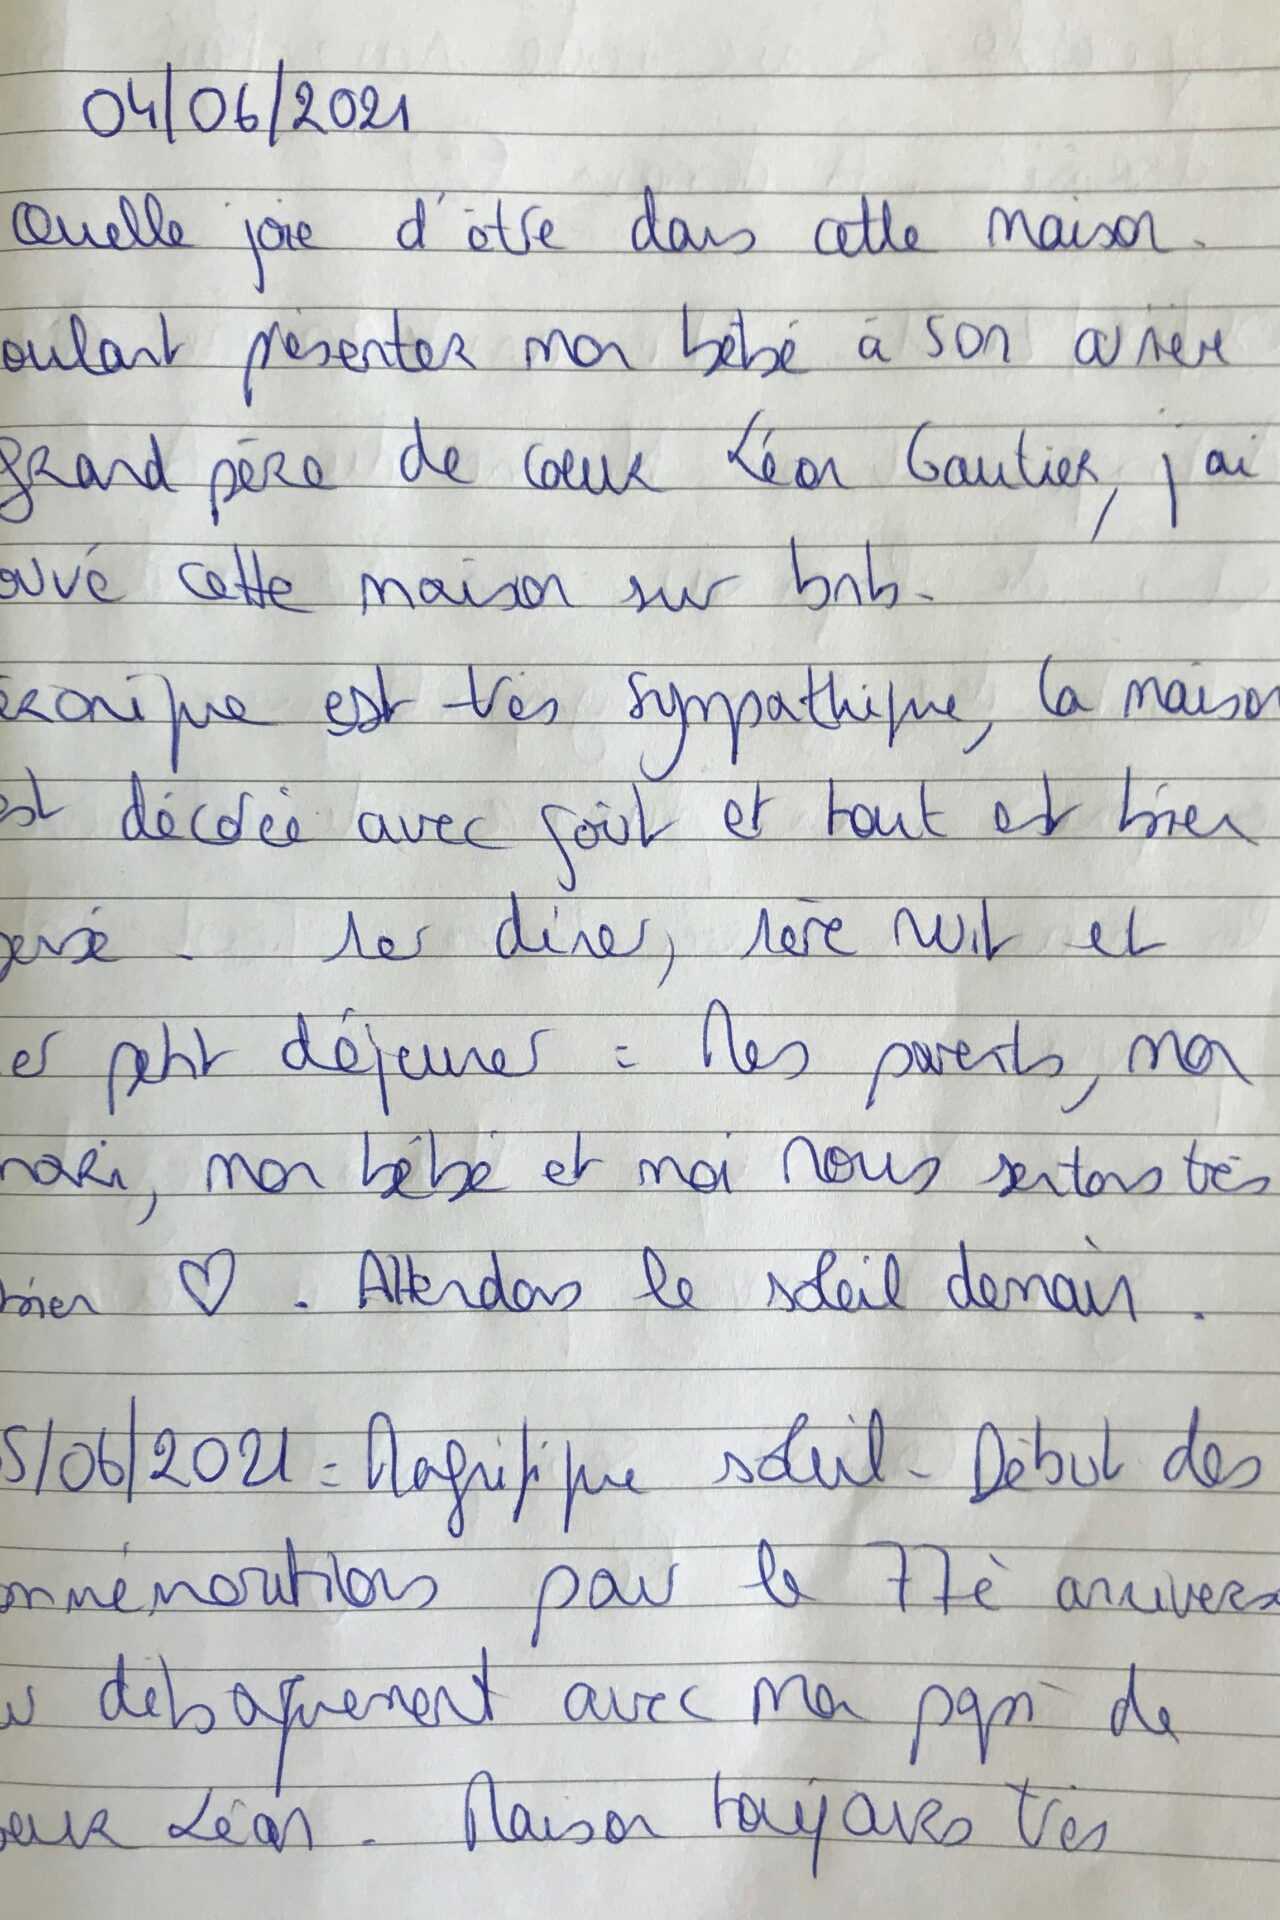 04/06/2021
Quelle joie d'être dans cette maison.
oulant présenter mon bébé à son arrière
grand père de coeur Léon Gautier, j'ai
ouvé cette maison sur bnb.
éronique est très sympathique, la maison
est décorée avec goût et tout est bien
pensé. 1er diner, 1ère nuit et
er petit déjeuner = Mes parents, mon
mari, mon bébé et moi nous sentons très
bien ♡. Attendons le soleil demain.
5/06/2021 = Magnifique soleil. Début des
ommémorations pour le 77è annivers
u débaquement avec mon papi de
oeur Léon. Maison toujours très